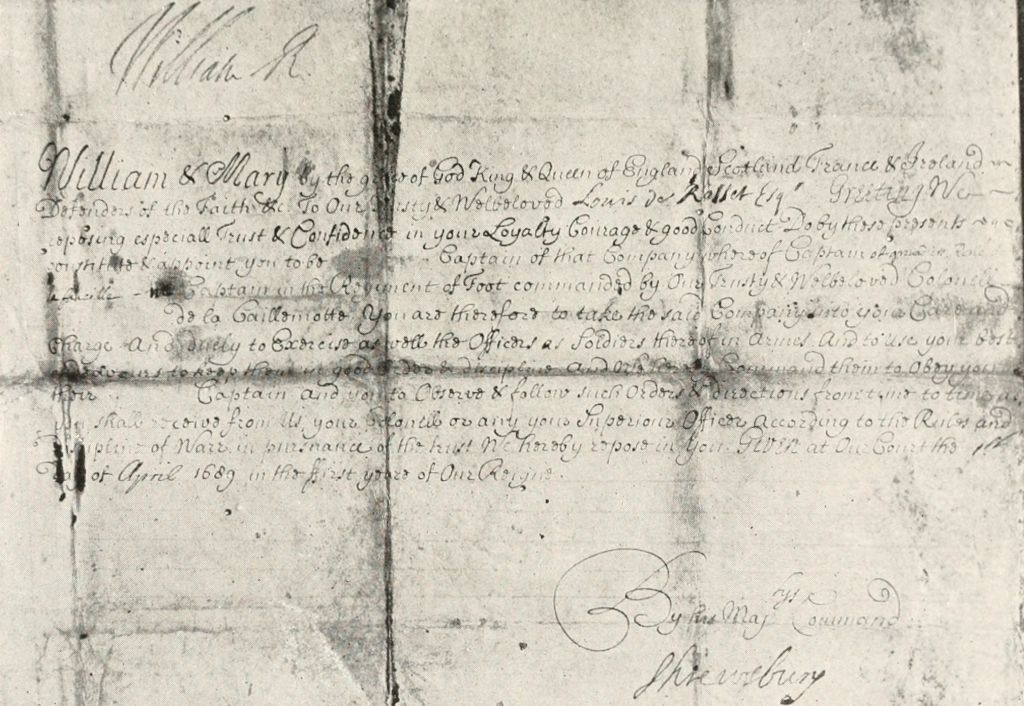 William R.
William & Mary by the grace of God King & Queen of England Scotland France & Ireland
Defenders of the Faith &c. To Our Trusty & Welbeloved Louis des Greeting We
reposing especiall Trust & Confidence in your Loyalty Courage & good Conduct Do by these presents
constitute & appoint you to be Captain of that Company whereof Captain
Captain in the Regiment of Foot commanded by Our Trusty & Welbeloved Colonell
de la Caillemotte You are therefore to take the said Company into your Care and
Charge And duely to Exercise as well the Officers as Soldiers thereof in Armes And to use your best
endeavours to keep them in good order & discipline And We hereby Command them to Obey you
their Captain and you to Observe & follow such Orders & directions from time to time as
you shall receive from Us, your Colonell or any your Superiour Officer According to the Rules and
Discipline of Warr in pursuance of the trust We hereby repose in You. GIVEN at Our Court the 1st
day of April 1689 in the first yeare of Our Reigne.
By his Maj tys Command
Shrewsbury